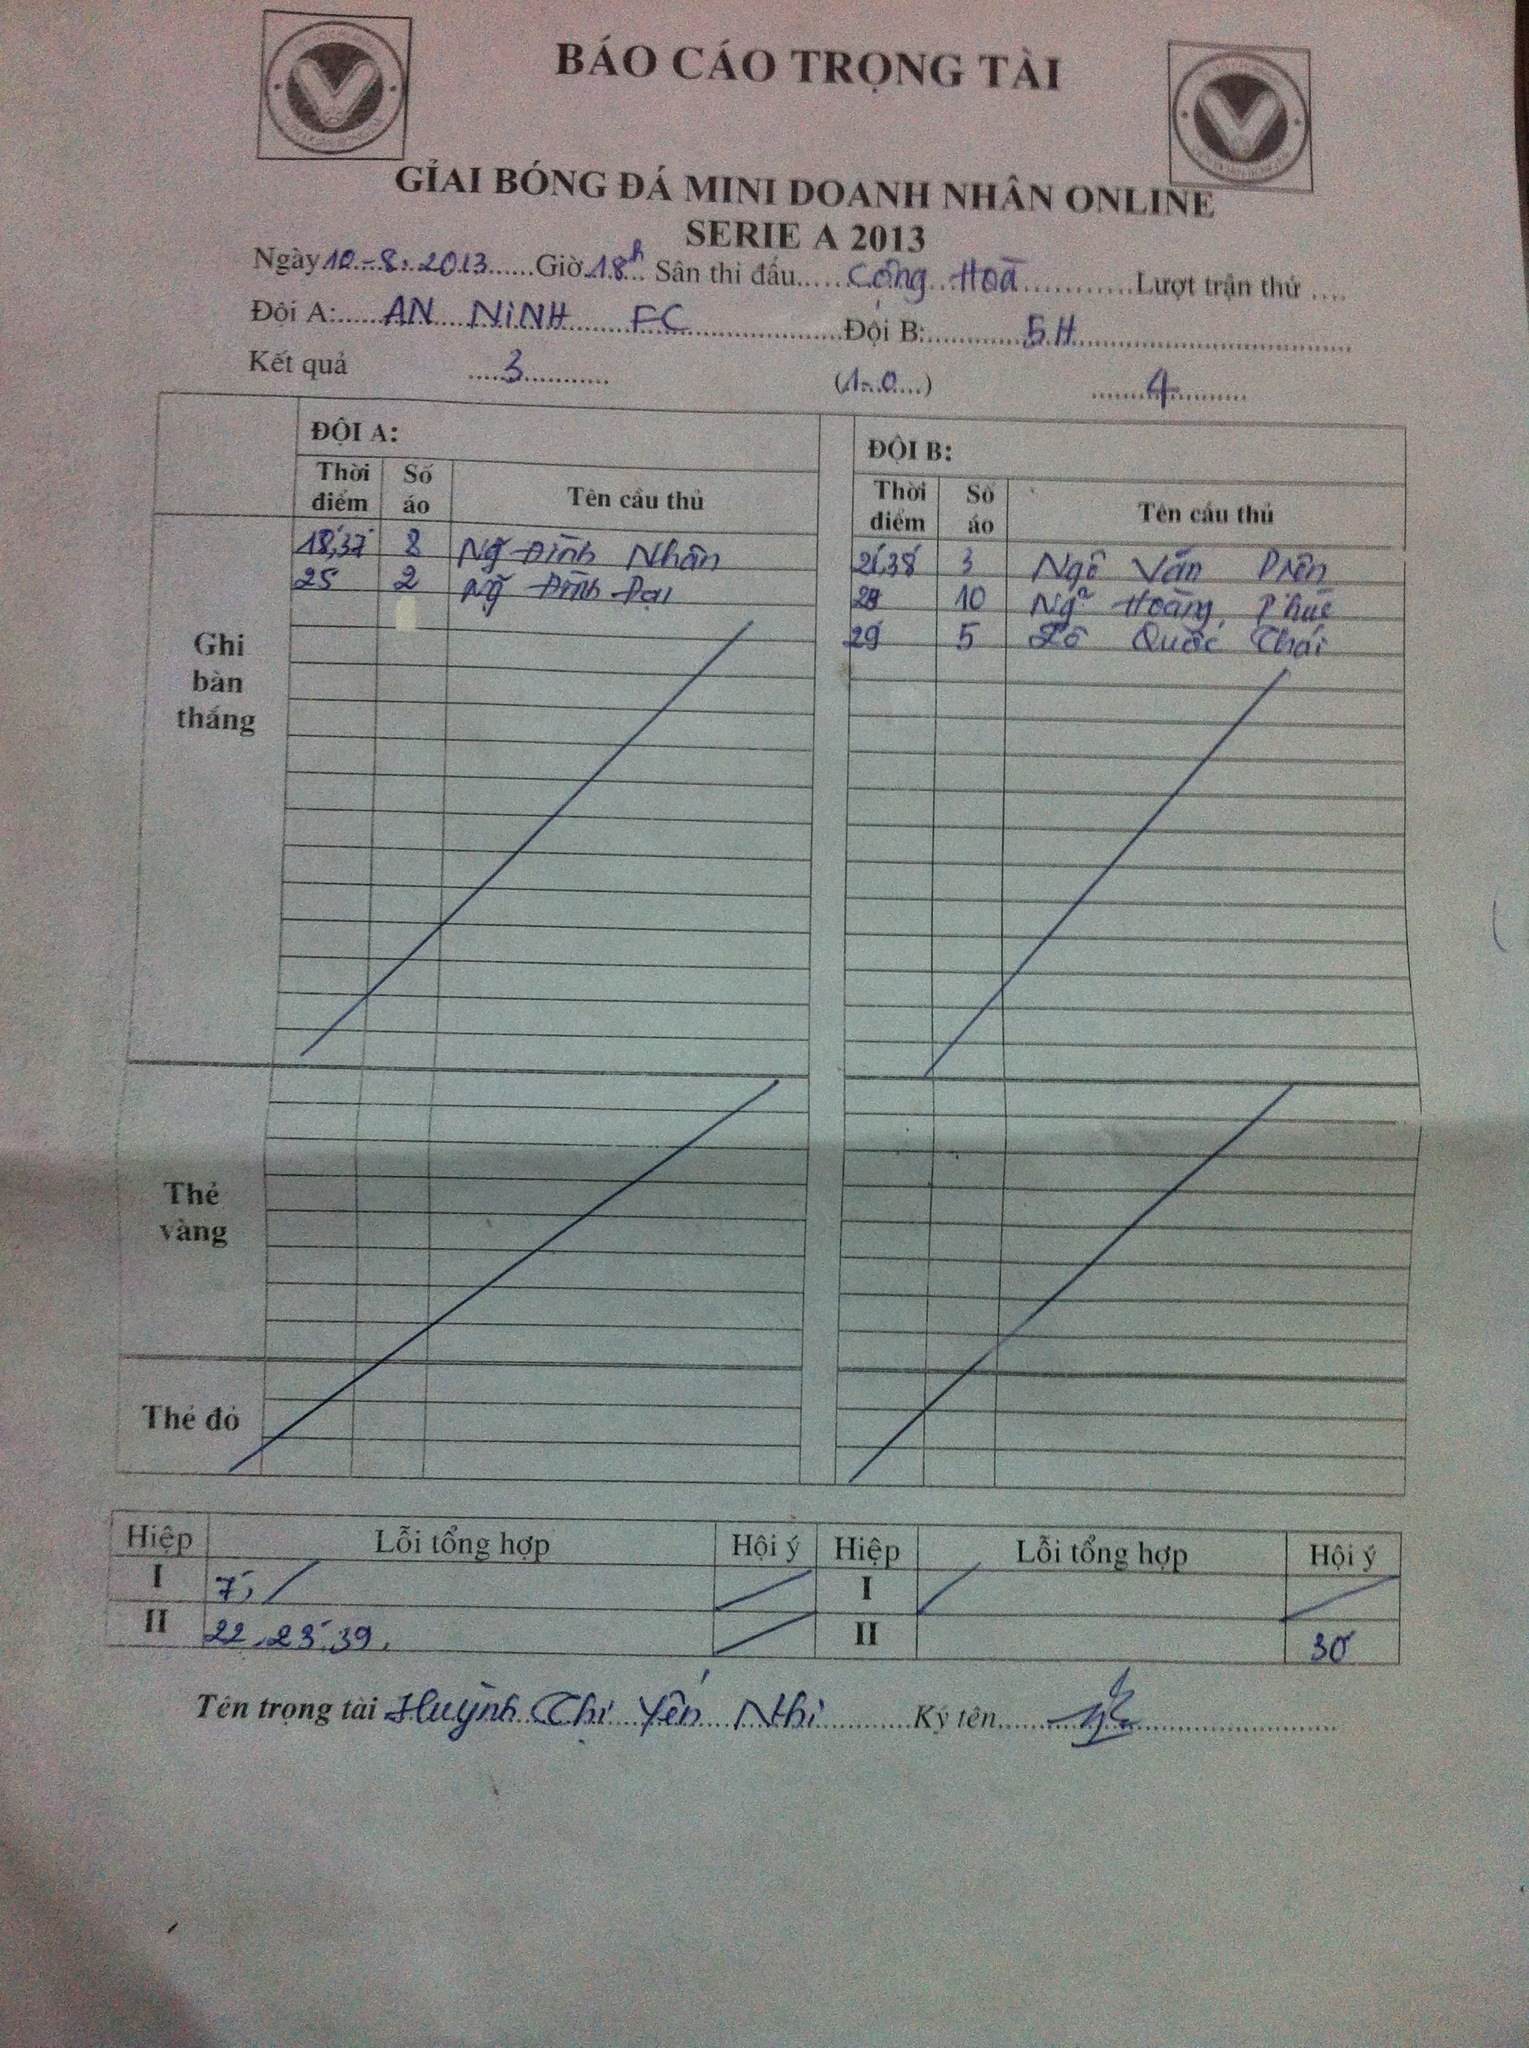 BÁO CÁO TRỌNG TÀI
GIẢI BÓNG ĐÁ MINI DOANH NHÂN ONLINE
SERIE A 2013
Ngày 10-8-2013 Giờ 18h Sân thi đấu Cộng Hoà Lượt trận thứ ....
Đội A: AN NINH FC Đội B: 5H
Kết quả 3 (1-0) 4
ĐỘI A: ĐỘI B:
Thời điểm Số áo Tên cầu thủ Thời điểm Số áo Tên cầu thủ
Ghi bàn thắng
18',37' 8 Ng~ Đình Nhân 21',38' 3 Ngô Văn
25 2 Ng~ Đình Đại 10 Ng~ Hoàng Phúc
29' 5 Quốc Thái
Thẻ vàng
Thẻ đỏ
Hiệp Lỗi tổng hợp Hội ý Hiệp Lỗi tổng hợp Hội ý
I 7', I
II 22, 23', 39, II 30'
Tên trọng tài Huỳnh Thị Yến Nhi Ký tên